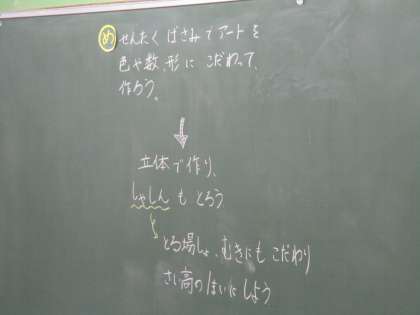 め せんたくばさみでアートを
色や数、形にこだわって、
作ろう。
立体で作り、
しゃしんもとろう
とる場しょ、むきにもこだわり
さい高のはいにしよう